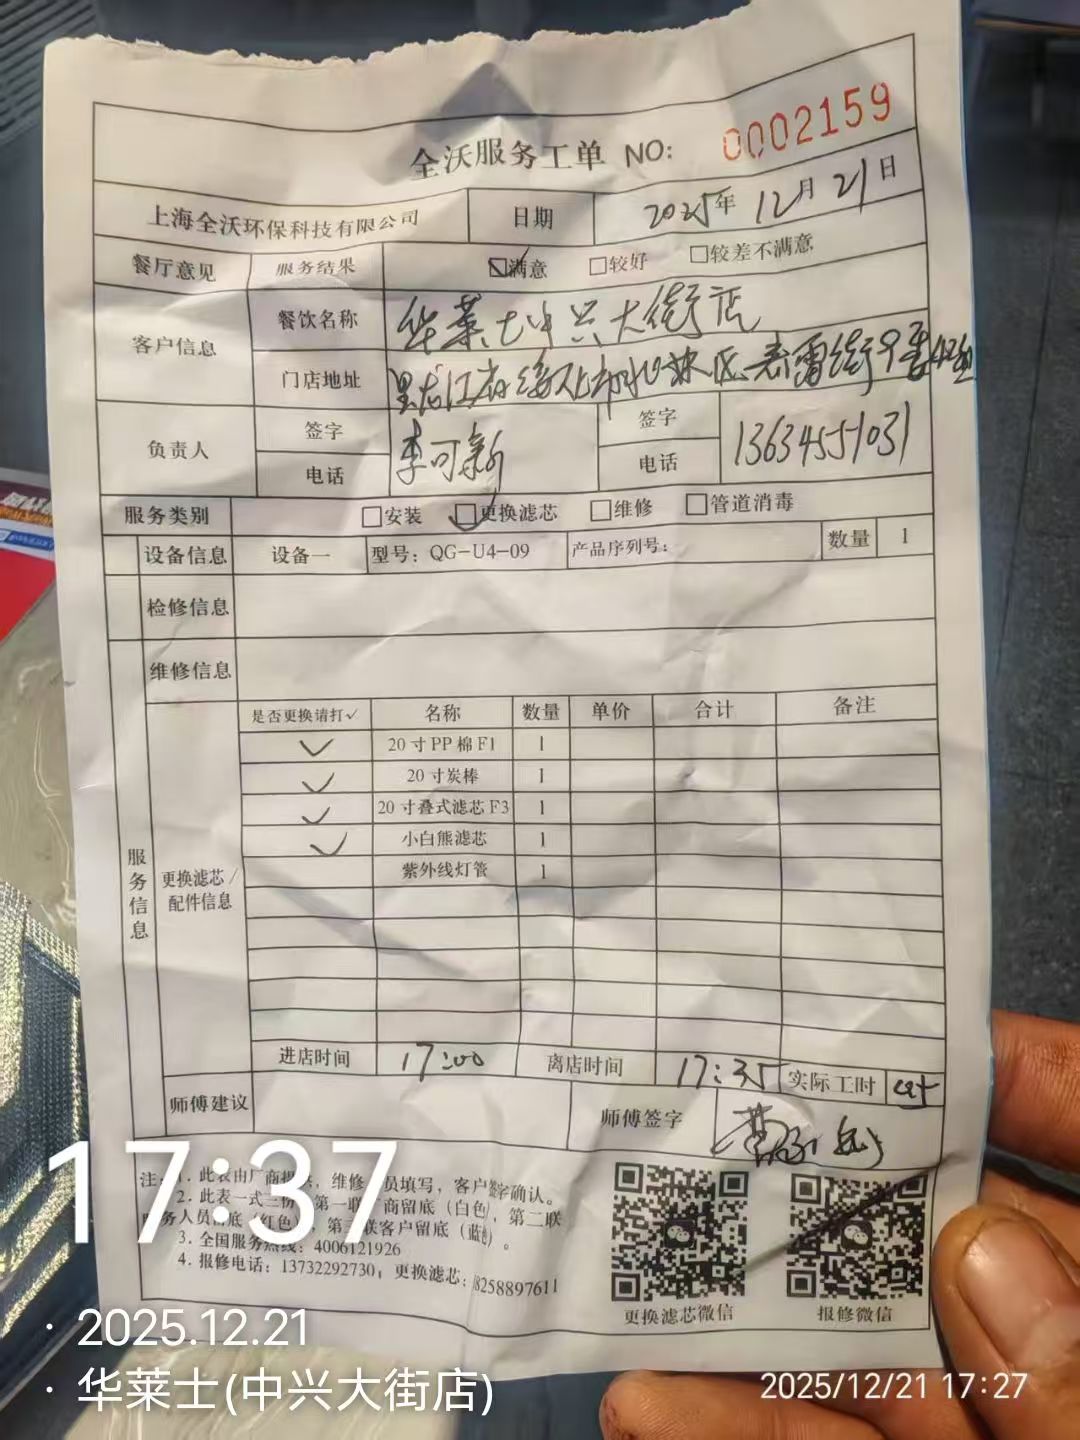 全沃服务工单 NO: 0002159
上海全沃环保科技有限公司 日期 2025年12月21日
餐厅意见 服务结果 ☑满意 □较好 □较差不满意
客户信息 餐饮名称 华莱士中兴大街店
门店地址 黑龙江省绥化市北林区
负责人 签字 李可新 签字
电话 电话 13634551031
服务类别 □安装 ☑更换滤芯 □维修 □管道消毒
设备信息 设备一 型号：QG-U4-09 产品序列号： 数量 1
检修信息
维修信息
服务信息
更换滤芯/配件信息
是否更换请打✓ 名称 数量 单价 合计 备注
✓ 20寸PP棉F1 1
✓ 20寸炭棒 1
✓ 20寸叠式滤芯F3 1
✓ 小白熊滤芯 1
紫外线灯管 1
进店时间 17:00 离店时间 17:35 实际工时
师傅建议 师傅签字
注：1. 此表由厂商提供，维修人员填写，客户签字确认。
2. 此表一式三份，第一联厂商留底（白色），第二联
服务人员留底（红色），第三联客户留底（蓝色）。
3. 全国服务热线：4006121926
4. 报修电话：13732292730；更换滤芯：8258897611
更换滤芯微信 报修微信
17:37
· 2025.12.21
· 华莱士(中兴大街店)
2025/12/21 17:27